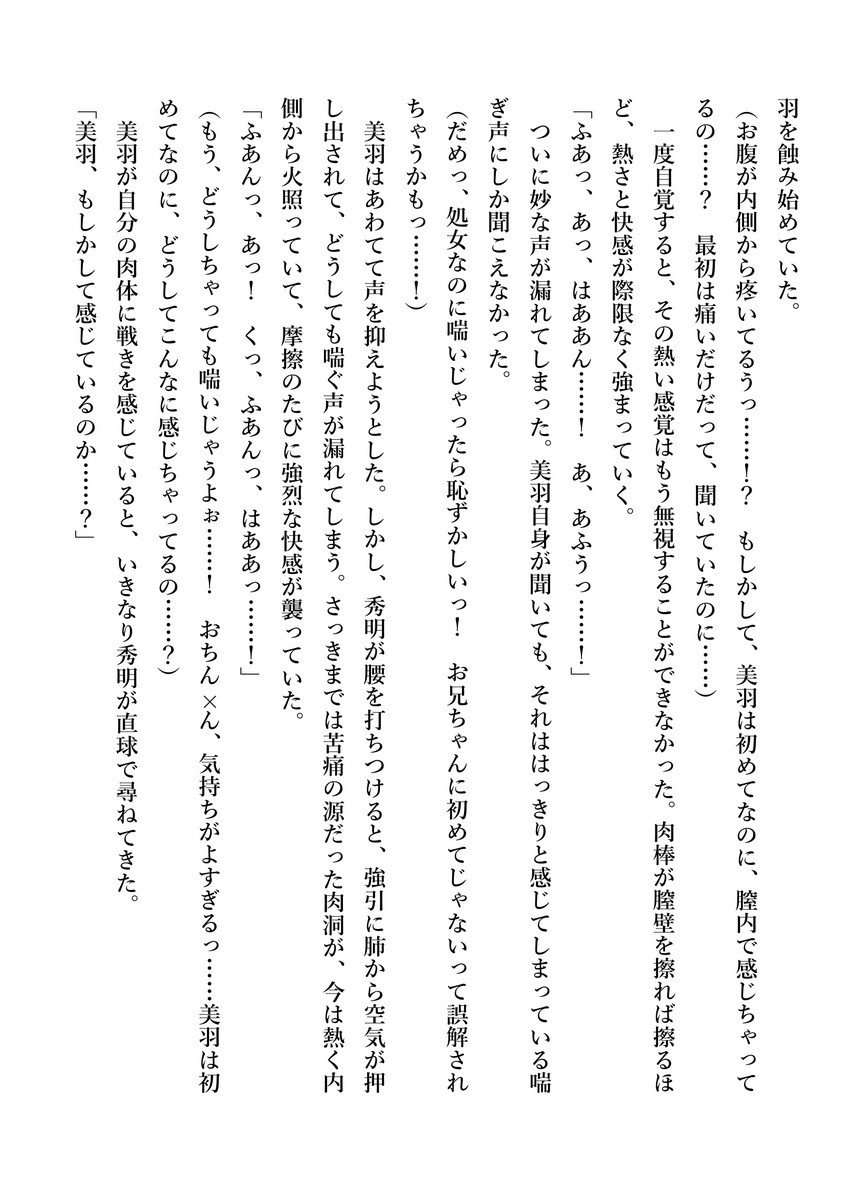 羽を蝕み始めていた。
(お腹が内側から疼いてるうっ……!?　もしかして、美羽は初めてなのに、膣内で感じちゃって
るの……?　最初は痛いだけだって、聞いていたのに……)
一度自覚すると、その熱い感覚はもう無視することができなかった。肉棒が膣壁を擦れば擦るほ
ど、熱さと快感が際限なく強まっていく。
「ふあっ、あっ、はああん……!　あ、あふうっ……!」
ついに妙な声が漏れてしまった。美羽自身が聞いても、それははっきりと感じてしまっている喘
ぎ声にしか聞こえなかった。
(だめっ、処女なのに喘いじゃったら恥ずかしいっ!　お兄ちゃんに初めてじゃないって誤解され
ちゃうかもっ……!)
美羽はあわてて声を抑えようとした。しかし、秀明が腰を打ちつけると、強引に肺から空気が押
し出されて、どうしても喘ぐ声が漏れてしまう。さっきまでは苦痛の源だった肉洞が、今は熱く内
側から火照っていて、摩擦のたびに強烈な快感が襲っていた。
「ふあんっ、あっ!　くっ、ふあんっ、はああっ……!」
(もう、どうしちゃっても喘いじゃうよぉ……!　おちん×ん、気持ちがよすぎるっ……美羽は初
めてなのに、どうしてこんなに感じちゃってるの……?)
美羽が自分の肉体に戦きを感じていると、いきなり秀明が直球で尋ねてきた。
「美羽、もしかして感じているのか……?」